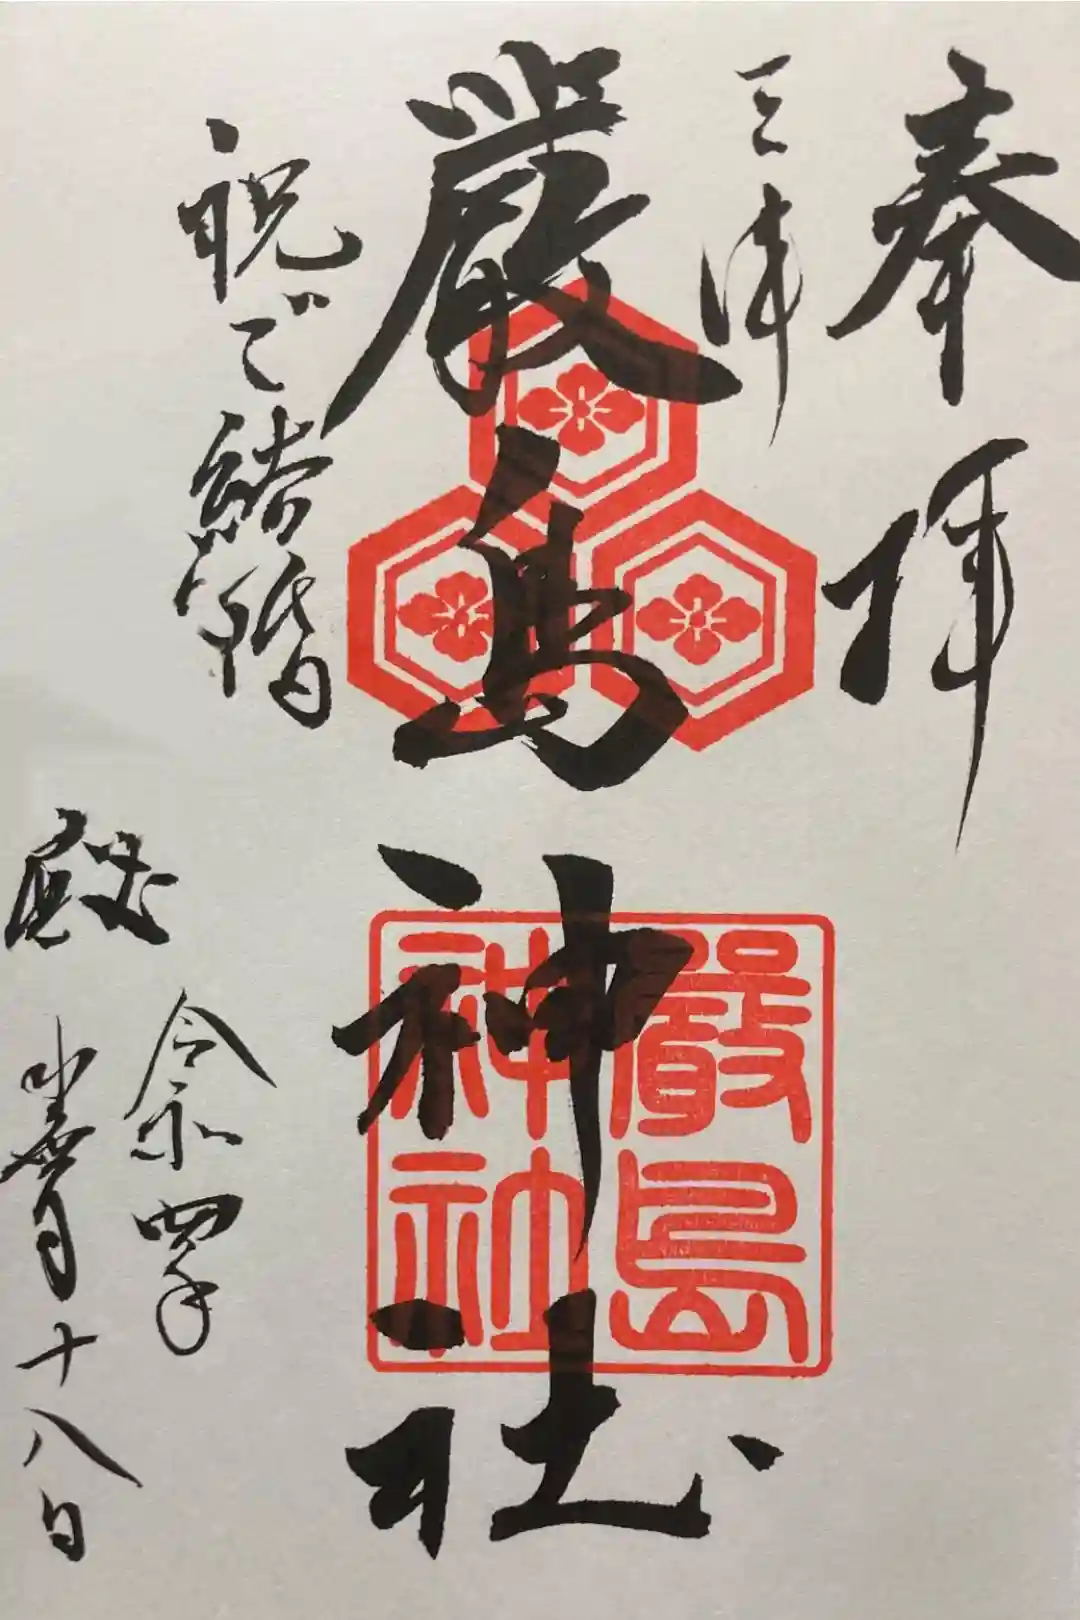 奉拝
三津
厳島神社
嚴島
神社
祝ご結婚
殿
令和四年
水無月十八日